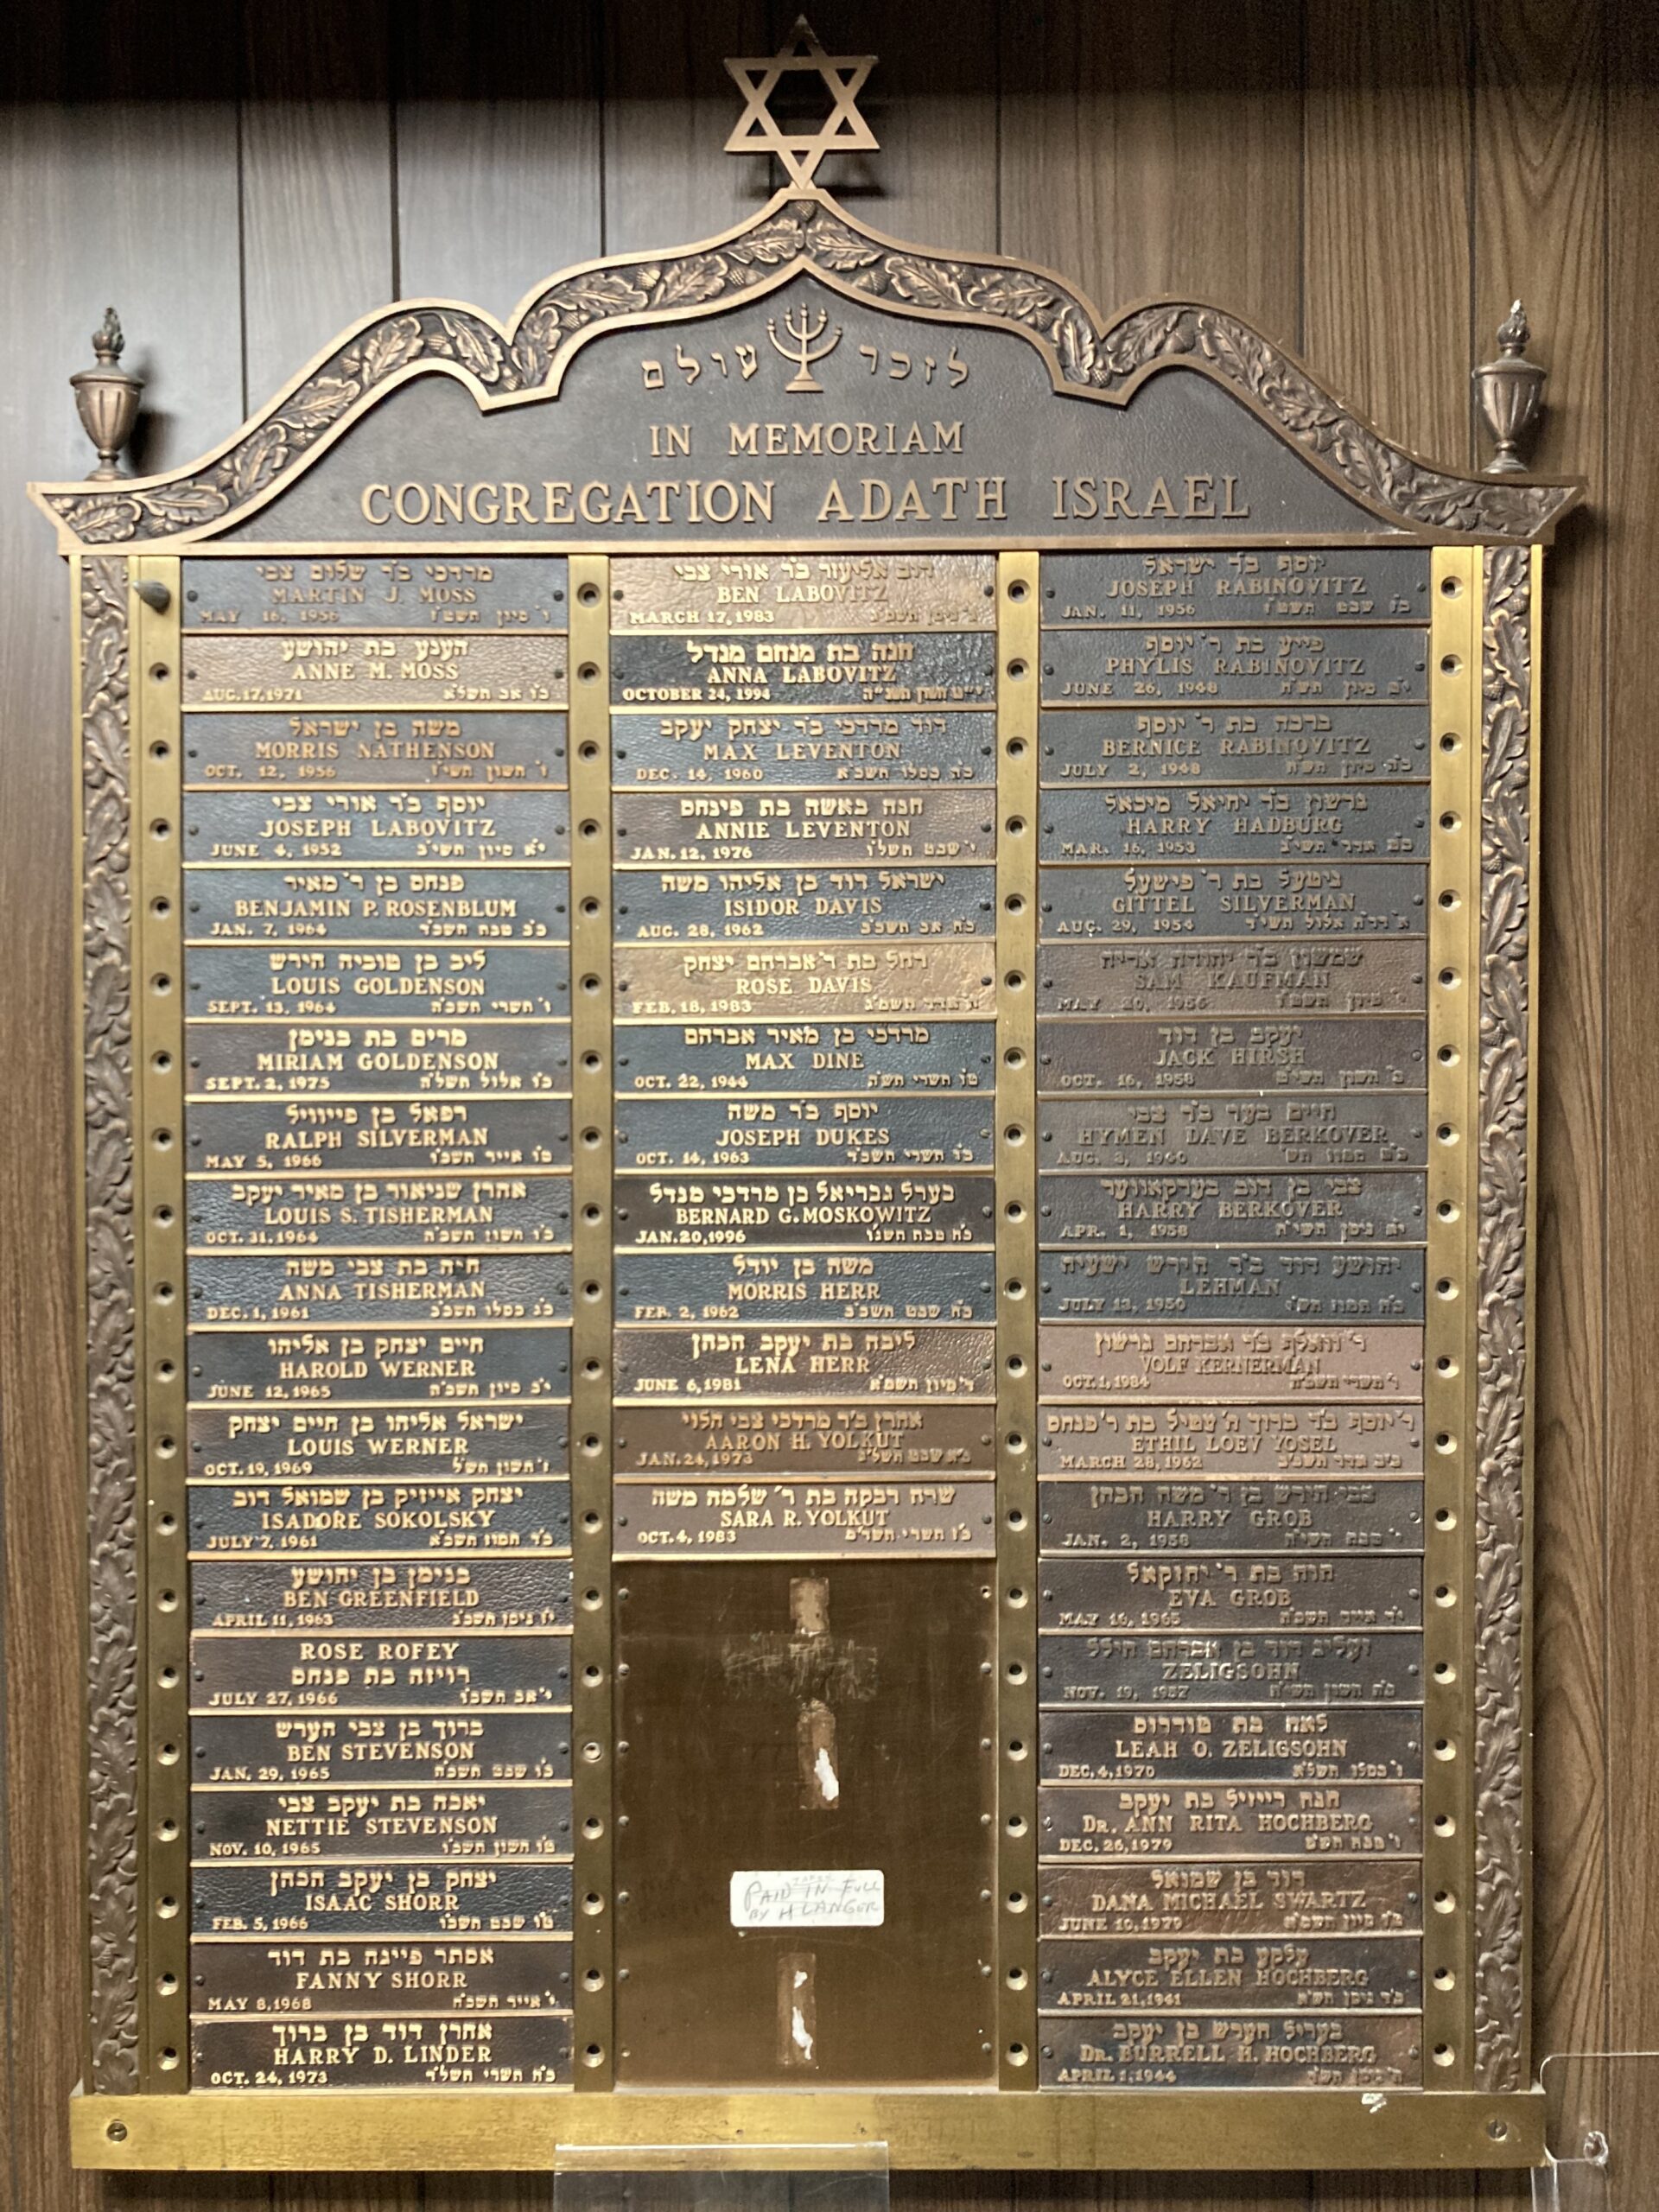 לזכר עולם
IN MEMORIAM
CONGREGATION ADATH ISRAEL
מרדכי ב״ר שלום צבי
MARTIN J. MOSS
MAY 16, 1956 ו׳ סיון תשט״ז
הענע בת יהושע
ANNE M. MOSS
AUG. 17, 1971 כ״ו אב תשל״א
משה בן ישראל
MORRIS NATHENSON
OCT. 12, 1956 ז׳ חשון תשי״ז
יוסף ב״ר אורי צבי
JOSEPH LABOVITZ
JUNE 4, 1952 י״א סיון תשי״ב
פנחס בן ר׳ מאיר
BENJAMIN P. ROSENBLUM
JAN. 7, 1964 כ״ב טבת תשכ״ד
ליב בן טוביה הירש
LOUIS GOLDENSON
SEPT. 13, 1964 ז׳ תשרי תשכ״ה
מרים בת בנימן
MIRIAM GOLDENSON
SEPT. 2, 1975 כ״ו אלול תשל״ה
רפאל בן פייוויל
RALPH SILVERMAN
MAY 5, 1966 ט״ו אייר תשכ״ו
אהרן שניאור בן מאיר יעקב
LOUIS S. TISHERMAN
OCT. 31. 1964 כ״ו חשון תשכ״ה
חיה בת צבי משה
ANNA TISHERMAN
DEC. 1, 1961 כ״ג כסלו תשכ״ב
חיים יצחק בן אליהו
HAROLD WERNER
JUNE 12, 1965 י״ב סיון תשכ״ה
ישראל אליהו בן חיים יצחק
LOUIS WERNER
OCT. 19, 1969 ז׳ חשון תש״ל
יצחק אייזיק בן שמואל דוב
ISADORE SOKOLSKY
JULY 7, 1961 כ״ד תמוז תשכ״א
בנימן בן יהושע
BEN GREENFIELD
APRIL 11, 1963 י״ז ניסן תשכ״ג
ROSE ROFEY
רויזה בת פנחס
JULY 27, 1966 י׳ אב תשכ״ו
ברוך בן צבי הערש
BEN STEVENSON
JAN. 29, 1965 כ״ו שבט תשכ״ה
יאכה בת יעקב צבי
NETTIE STEVENSON
NOV. 10, 1965 ט״ו חשון תשכ״ו
יצחק בן יעקב הכהן
ISAAC SHORR
FEB. 5, 1966 ט״ו שבט תשכ״ו
אסתר פייגה בת דוד
FANNY SHORR
MAY 8, 1968 י׳ אייר תשכ״ח
אהרן דוד בן ברוך
HARRY D. LINDER
OCT. 24, 1973 כ״ח תשרי תשל״ד
דוב אליעזר ב״ר אורי צבי
BEN LABOVITZ
MARCH 17, 1983 ג׳ ניסן תשמ״ג
חנה בת מנחם מנדל
ANNA LABOVITZ
OCTOBER 24, 1994 י״ט חשון תשנ״ה
דוד מרדכי ב״ר יצחק יעקב
MAX LEVENTON
DEC. 14, 1960 כ״ה כסלו תשכ״א
חנה באשה בת פינחס
ANNIE LEVENTON
JAN. 12, 1976 י׳ שבט תשל״ו
ישראל דוד בן אליהו משה
ISIDOR DAVIS
AUG. 28, 1962 כ״ח אב תשכ״ב
רחל בת ר׳ אברהם יצחק
ROSE DAVIS
FEB. 18, 1983 אדר תשמ״ג
מרדכי בן מאיר אברהם
MAX DINE
OCT. 22, 1944 תשרי תש״ה
יוסף ב״ר משה
JOSEPH DUKES
OCT. 14, 1963 כ״ו תשרי תשכ״ד
בערל גבריאל בן מרדכי מנדל
BERNARD G. MOSKOWITZ
JAN. 20, 1996 כ״ח טבת תשנ״ו
משה בן יודל
MORRIS HERR
FEB. 2, 1962 כ״ח שבט תשכ״ב
ליבה בת יעקב הכהן
LENA HERR
JUNE 6, 1981 ד׳ סיון תשמ״א
אהרן ב״ר מרדכי צבי הלוי
AARON H. YOLKUT
JAN. 24, 1973 כ״א שבט תשל״ג
שרה רבקה בת ר׳ שלמה משה
SARA R. YOLKUT
OCT. 4, 1983 כ״ז תשרי תשד״ם
PAID IN FULL
BY H LANGER
יוסף ב״ר ישראל
JOSEPH RABINOVITZ
JAN. 11, 1956 שבט תשט״ז
פייע בת ר׳ יוסף
PHYLIS RABINOVITZ
JUNE 26, 1948 סיון תש״ח
ברכה בת ר׳ יוסף
BERNICE RABINOVITZ
JULY 2, 1948 כ״ה סיון תש״ח
גרשון ב״ר יחיאל מיכאל
HARRY HADBURG
MAR. 16, 1953 כ״ט אדר תשי״ג
גיטעל בת ר׳ פישעל
GITTEL SILVERMAN
AUG. 29, 1954 א׳ דר״ח אלול תשי״ד
שמשון ב״ר יהודה אריה
SAM KAUFMAN
MAY 20, 1956 י׳ סיון תשט״ז
יעקב בן דוד
JACK HIRSH
OCT. 16, 1958 ב׳ חשון תשי״ט
חיים בער ב״ר צבי
HYMEN DAVE BERKOVER
AUG. 3, 1940 כ״ח תמוז תש
צבי בן דוב בערקאווער
HARRY BERKOVER
APR. 1, 1958 י״א ניסן תשי״ח
יהושע דוד ב״ר הירש ישעיה
LEHMAN
JULY 13, 1950 כ״ח תמוז תש״י
ר׳ וואלף ב״ר אברהם גרשון
VOLF KERNERMAN
OCT. 1, 1984 ו׳ תשרי תשמ״ה
ר׳ יוסף ב״ר ברוך ה׳ עטיל בת ר׳ פנחס
ETHIL LOEV YOSEL
MARCH 28, 1962 כ״ב אדר תשכ״ב
צבי הירש בן ר׳ משה הכהן
HARRY GROB
JAN. 2, 1958 י׳ טבת תשי״ח
חוה בת ר׳ יחזקאל
EVA GROB
MAY 16, 1965 י״ד אייר תשכ״ה
זעליג דוד בן אברהם הילל
ZELIGSOHN
NOV. 19, 1957 כ״ה חשון תשי״ח
לאה בת טודרוס
LEAH O. ZELIGSOHN
DEC. 4, 1970 ו׳ כסלו תשל״א
חנה רייזיל בת יעקב
DR. ANN RITA HOCHBERG
DEC. 26, 1979 ו׳ טבת תש״מ
דוד בן שמואל
DANA MICHAEL SWARTZ
JUNE 10, 1979 סיון תשל״ט
עלקע בת יעקב
ALYCE ELLEN HOCHBERG
APRIL 21, 1941 כ״ד ניסן תש״א
בעריל הערש בן יעקב
DR. BURRELL H. HOCHBERG
APRIL 1, 1944 ניסן תש״ד